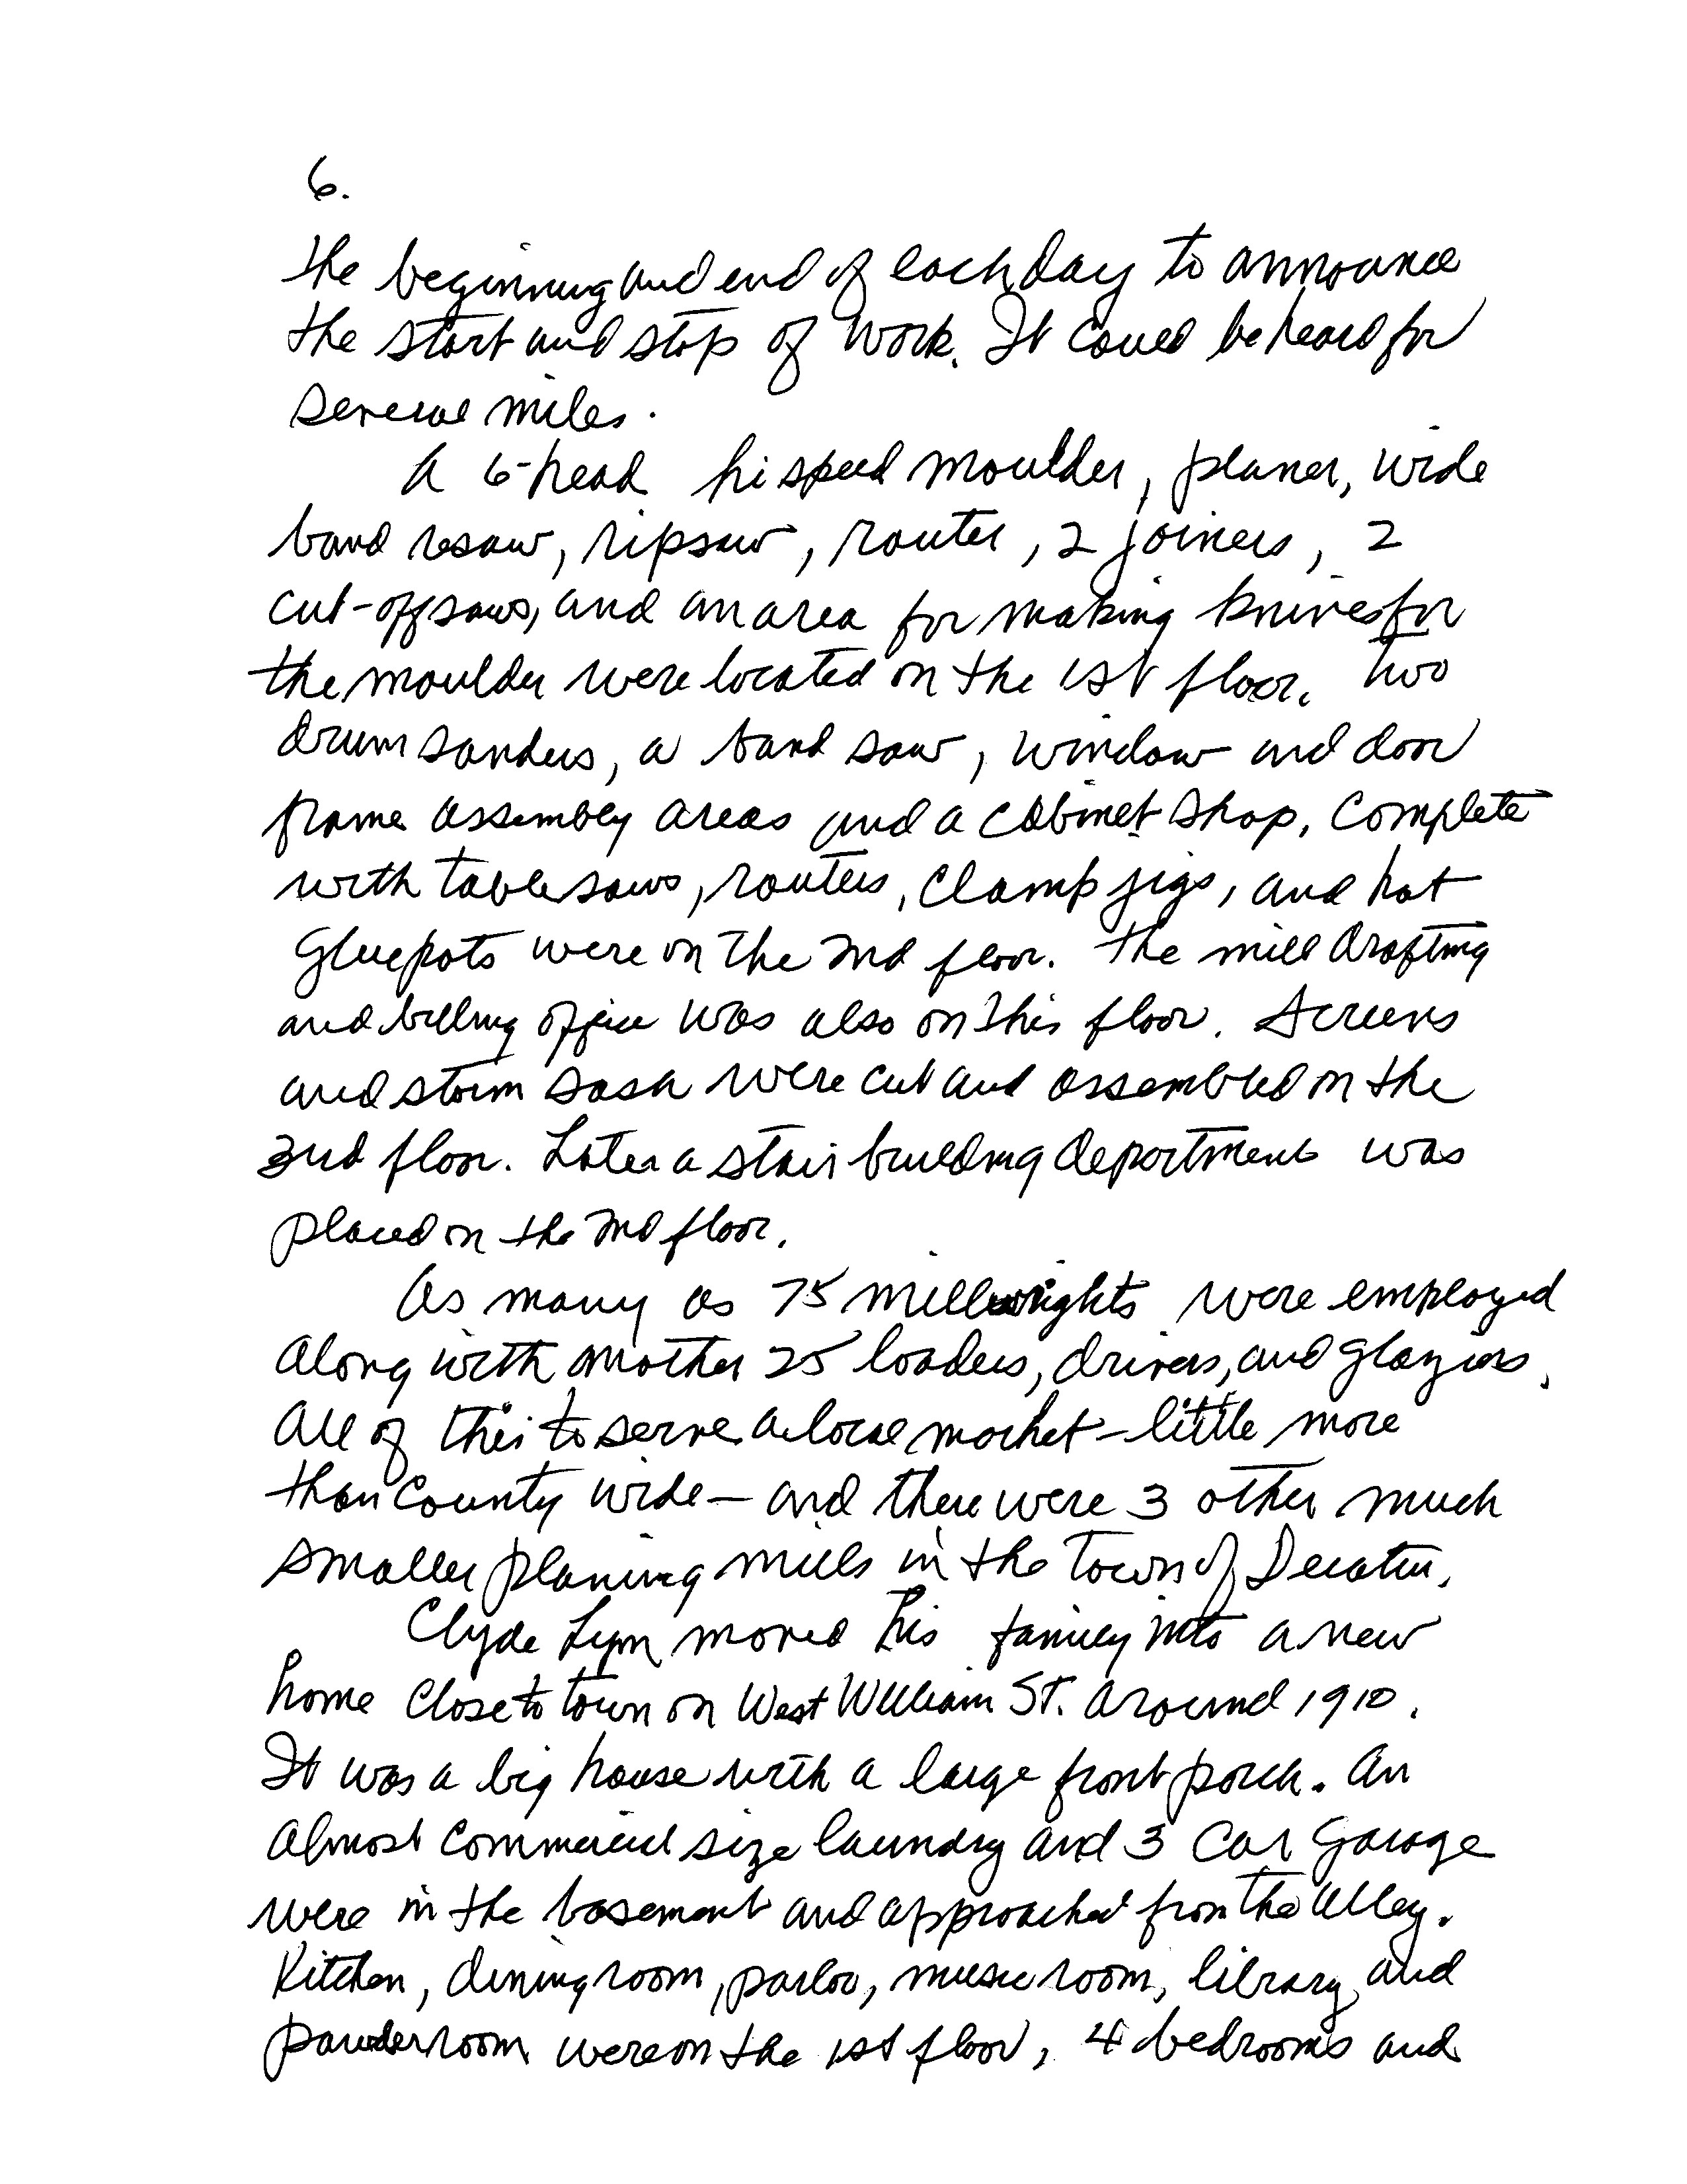 6.
the beginning and end of each day to announce
the start and stop of work. It could be heard for
several miles.
A 6-head hi speed moulder, planer, wide
band resaw, ripsaw, router, 2 joiners, 2
cut-off saws, and an area for making knives for
the moulder were located on the 1st floor. Two
drum sanders, a band saw, window and door
frame assembly areas and a cabinet shop, complete
with table saws, routers, clamp jigs, and hot
gluepots were on the 2nd floor. The mill drafting
and billing office was also on this floor. Screens
and storm sash were cut and assembled on the
3rd floor. Later a stair building department was
placed on the 2nd floor.
As many as 75 millwrights were employed
along with another 25 loaders, drivers, and glaziers.
All of this to serve a local market - little more
than County wide - and there were 3 other much
smaller planing mills in the Town of Decatur.
Clyde Lyon moved his family into a new
home close to town on West William St. around 1910.
It was a big house with a large front porch. An
almost commercial size laundry and 3 car garage
were in the basement and approached from the alley.
Kitchen, dining room, parlor, music room, library, and
powder room were on the 1st floor, 4 bedrooms and